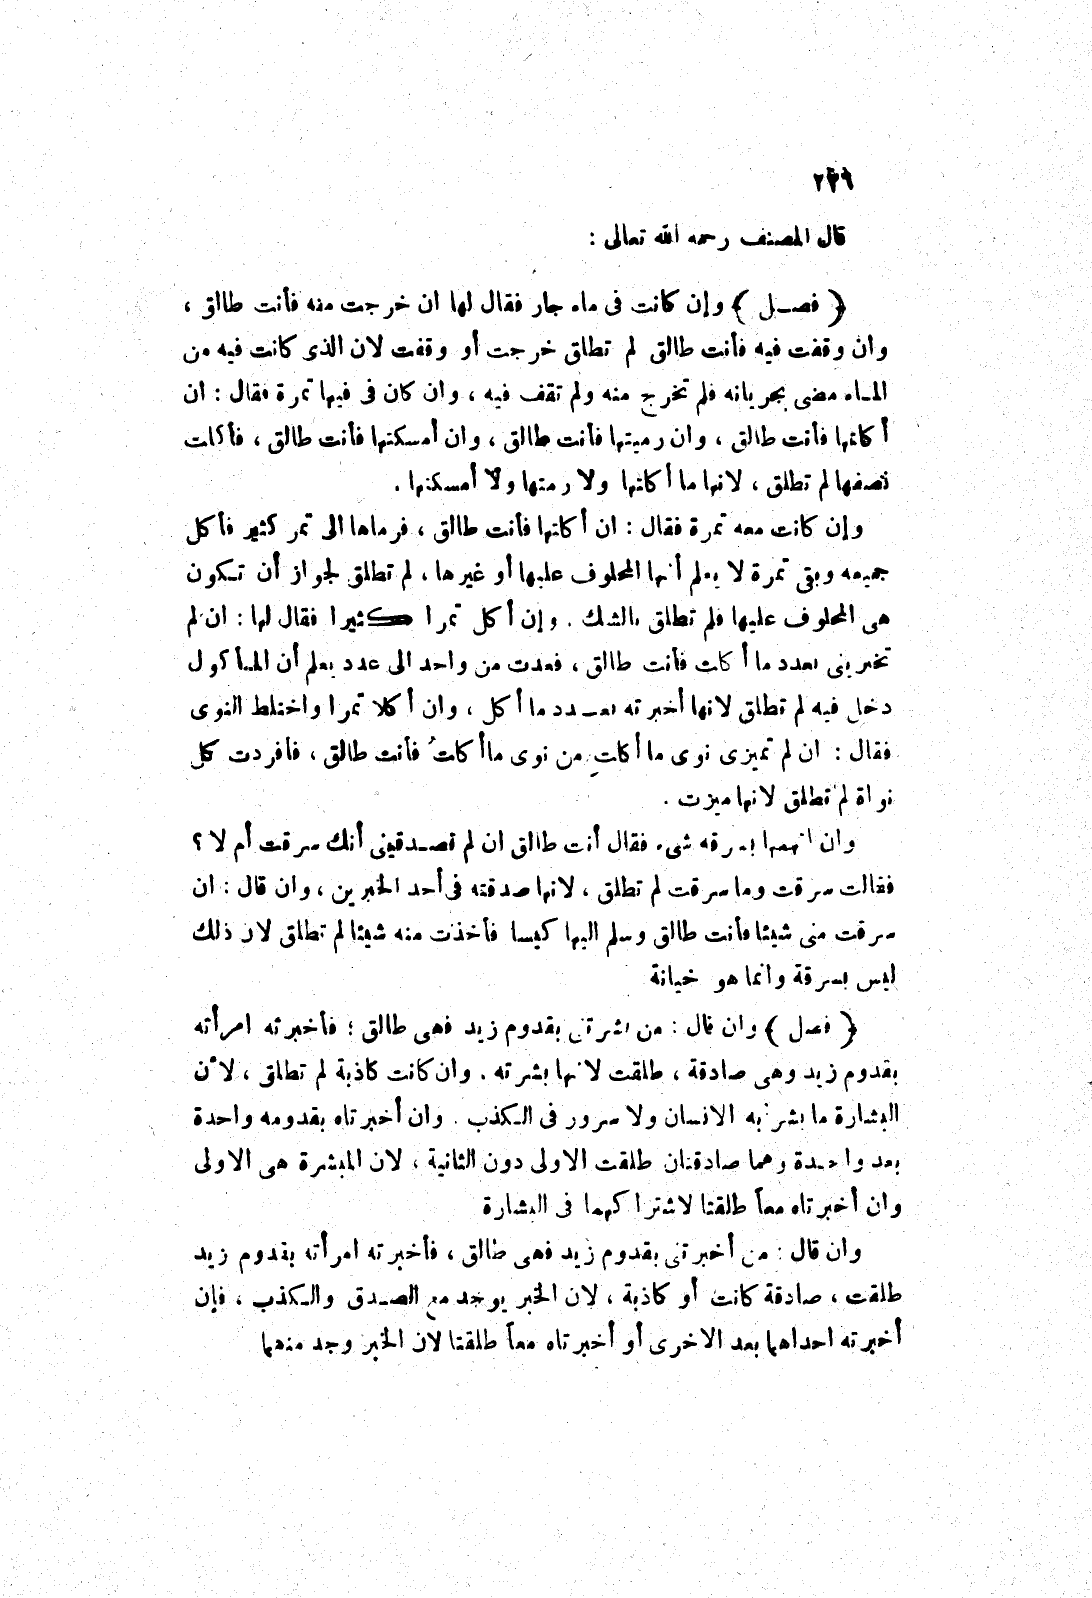 قال المصنف رحمه الله تعالى :
﴿ فصــل ﴾ وإن كانت فى ماء جار فقال لها ان خرجت منه فأنت طالق ،
وان وقفت فيه فأنت طالق لم تطلق خرجت أو وقفت لان الذى كانت فيه من
المـاء مضى بجريانه فلم تخرج منه ولم تقف فيه ، وان كان فى فيها تمرة فقال : ان
أكلتها فأنت طالق ، وان رميتها فأنت طالق ، وان أمسكتها فأنت طالق ، فأكلت
نصفها لم تطلق ، لانها ما أكلتها ولا رمتها ولا أمسكتها .
وإن كانت معه تمرة فقال : ان أكلتها فأنت طالق ، فرماها الى تمر كثير فأكل
جميعه وبقى تمرة لا يعلم أنها المحلوف عليها أو غيرها ، لم تطلق لجواز أن تـكون
هى المحلوف عليها فلم تطلق بالشك . وإن أكل تمرا كثيرا فقال لها : ان لم
تخبرينى بعدد ما أكلت فأنت طالق ، فعدت من واحد الى عدد يعلم أن المـأكول
دخل فيه لم تطلق لانها أخبرته بعـدد ما أكل ، وان أكلا تمرا واختلط النوى
فقال : ان لم تميزى نوى ما أكلتِ من نوى ما أكلتُ فأنت طالق ، فأفردت كل
نواة لم تطلق لانها ميزت .
وان اتهمها بسرقه شىء فقال أنت طالق ان لم تصـدقينى أنك سرقت أم لا ؟
فقالت سرقت وما سرقت لم تطلق ، لانها صدقته فى أحد الخبرين ، وان قال : ان
سرقت منى شيئا فأنت طالق وسلم اليها كيسا فأخذت منه شيئا لم تطلق لان ذلك
ليس بسرقة وانما هو خيانة
﴿ فصل ﴾ وان قال : من بشرتنى بقدوم زيد فهى طالق ؛ فأخبرته امرأته
بقدوم زيد وهى صادقة ، طلقت لانها بشرته . وان كانت كاذبة لم تطلق ، لأن
البشارة ما بشر به الانسان ولا سرور فى الـكذب . وان أخبرتاه بقدومه واحدة
بعد واحـدة وهما صادقتان طلقت الاولى دون الثانية ، لان المبشرة هى الاولى
وان أخبرتاه معاً طلقتا لاشتراكهما فى البشارة
وان قال : من أخبرتنى بقدوم زيد فهى طالق ، فأخبرته امرأته بقدوم زيد
طلقت ، صادقة كانت أو كاذبة ، لان الخبر يوجد مع الصـدق والـكذب ، فإن
أخبرته احداهما بعد الاخرى أو أخبرتاه معاً طلقتا لان الخبر وجد منهما